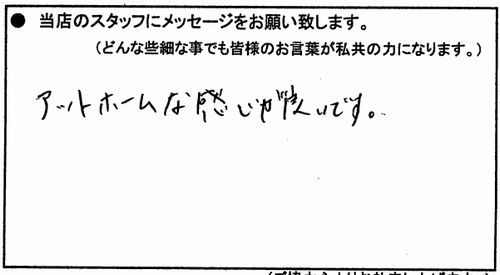 ● 当店のスタッフにメッセージをお願い致します。
（どんな些細な事でも皆様のお言葉が私共の力になります。）
アットホームな感じが良いです。